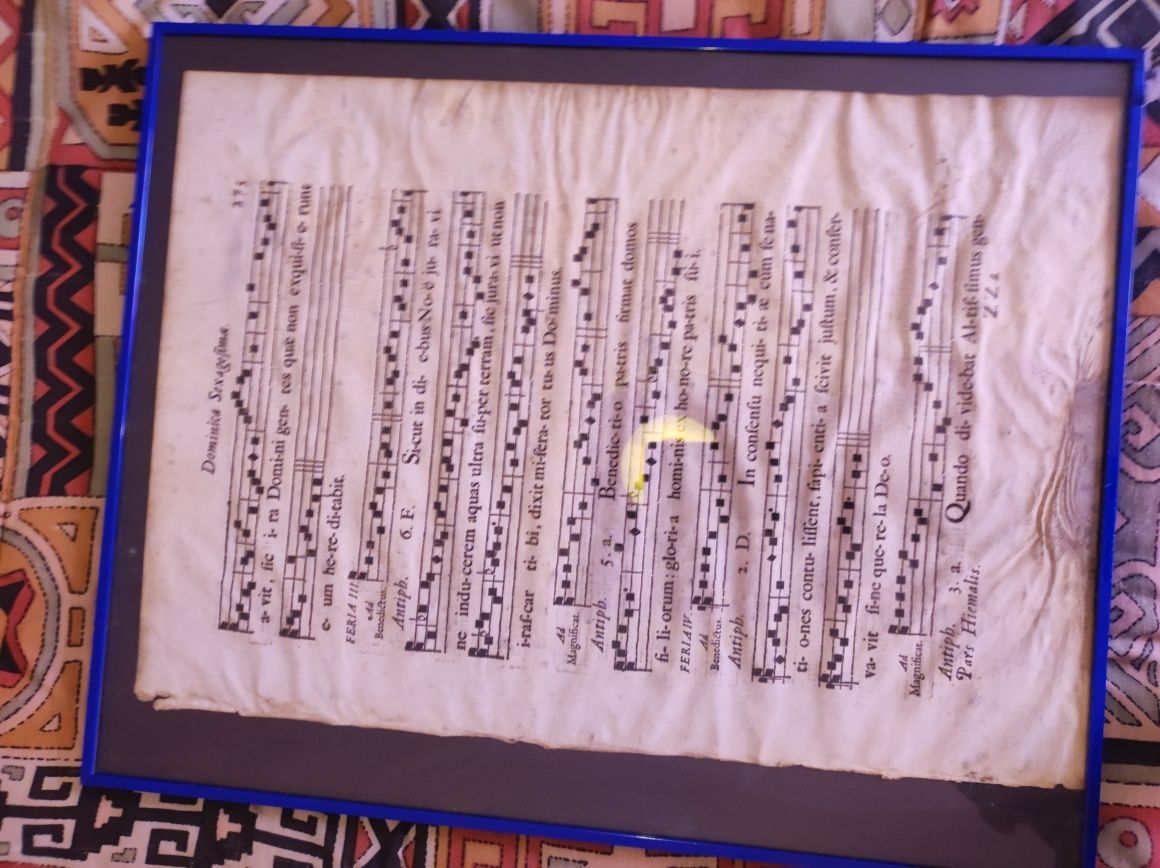 Dominica Sexagesima.
a-vit, sic i-ra Domi-ni gen-tes quæ non exqui-si-e-runt
e-um he-re-di-tabit.
FERIA III.
Ad
Benedictus.
Antiph. 6. F. Si-cut in di-e-bus No-ë ju-ra-vi
ne indu-cerem aquas ultra su-per terram, sic jura-vi ne non
i-ras-car ti-bi, dixit mi-sera-tor tu-us Do-minus.
Ad
Magnificat.
Antiph. 5. a. Benedic-ti-o pa-tris firmat domos
fi-li-orum: glo-ri-a homi-nis ex ho-no-re pa-tris su-i.
FERIA IV.
Ad
Benedictus.
Antiph. 2. D. In consensu nequi-ti-æ cùm se na-
ti-o-nes contu-lissent, sapi-enti-a scivit justum, & conser-
va-vit si-ne que-re-la De-o.
Ad
Magnificat.
Antiph. 3. a. Quando di-vide-bat Al-tis-simus gen-
Pars Hiemalis. Zz2